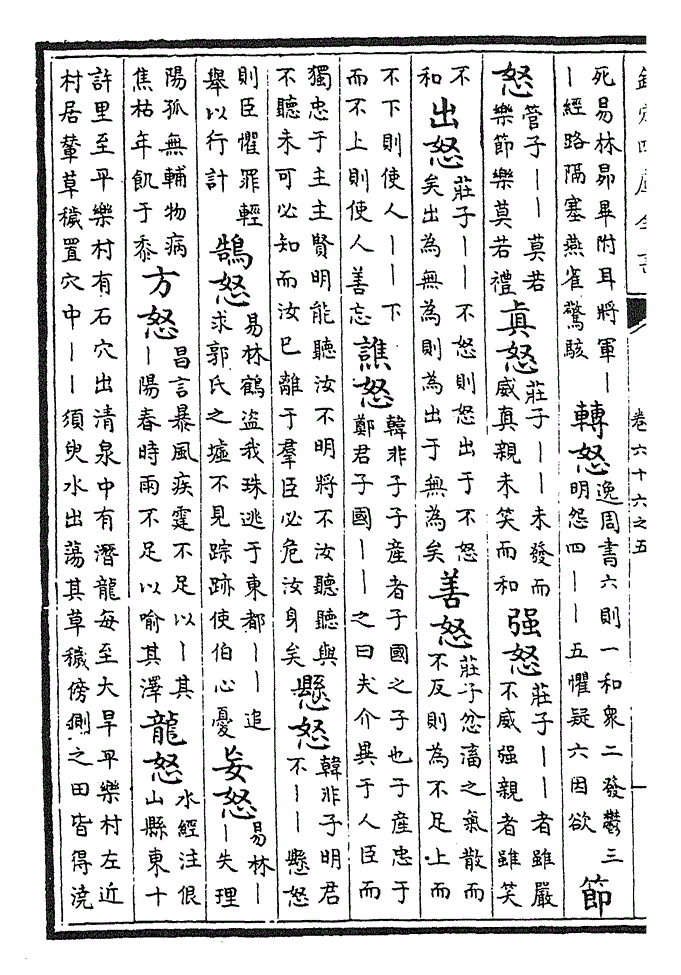 欽定四庫全書
卷六十六之五
死易林昴畢附耳將軍丨丨經路隔塞燕雀驚駭 轉怒 逸周書六則一和衆二發鬱三明怨四丨丨五懼疑六因欲 節
怒 管子丨丨莫若樂節樂莫若禮 眞怒 莊子丨丨未發而威真親未笑而和 强怒 莊子丨丨者雖嚴不威强親者雖笑
不和 出怒 莊子丨丨不怒則怒出于不怒矣出為無為則為出于無為矣 善怒 莊子忿滀之氣散而不反則為不足上而
不下則使人丨丨下而不上則使人善忘 譙怒 韓非子子產者子國之子也子產忠于鄭君子國丨丨之曰夫介異于人臣而
獨忠于主主賢明能聽汝不明將不汝聽聽與不聽未可必知而汝已離于羣臣必危汝身矣 懸怒 韓非子明君不丨丨懸怒
則臣懼罪輕舉以行計 鵠怒 易林鶴盜我珠逃于東都丨丨追求郭氏之墟不見踪跡使伯心憂 妄怒 易林丨丨失理
陽孤無輔物病焦枯年飢于黍 方怒 昌言暴風疾霆不足以丨其丨陽春時雨不足以喻其澤 龍怒 水經注佷山縣東十
許里至平樂村有石穴出清泉中有潛龍每至大旱平樂村左近村居輦草穢置穴中丨丨須臾水出蕩其草穢傍側之田皆得澆